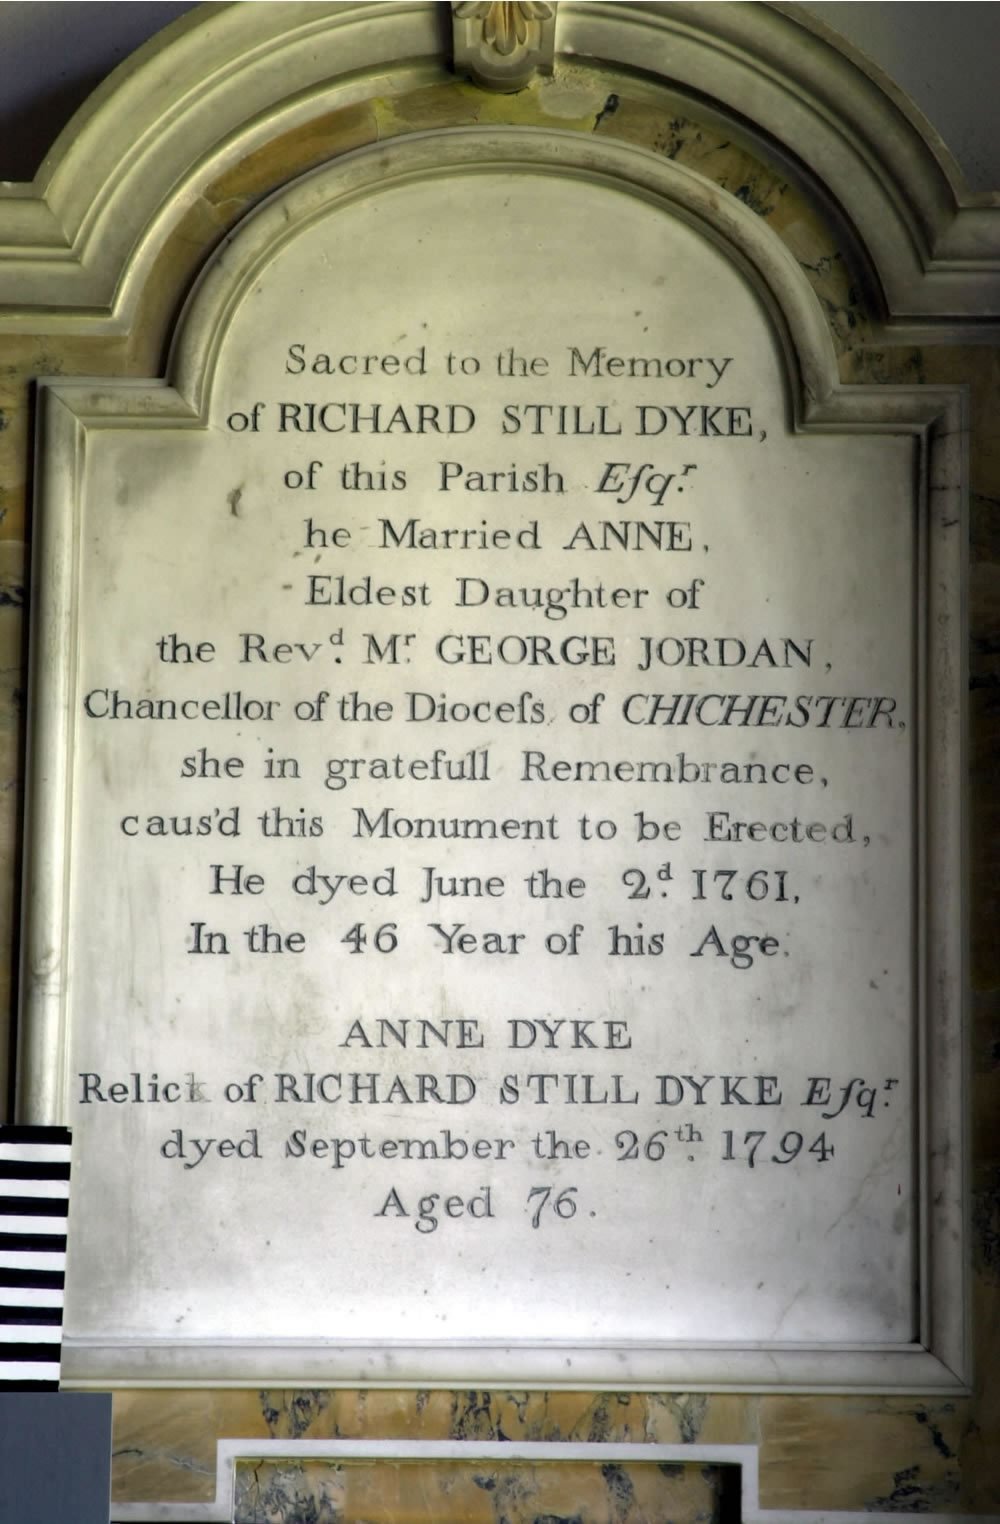 Sacred to the Memory
of RICHARD STILL DYKE,
of this Parish Eſqr.
he Married ANNE,
Eldest Daughter of
the Revd. Mr. GEORGE JORDAN,
Chancellor of the Dioceſs, of CHICHESTER,
she in gratefull Remembrance,
caus'd this Monument to be Erected,
He dyed June the 2d. 1761,
In the 46 Year of his Age.
ANNE DYKE
Relict of RICHARD STILL DYKE Eſqr.
dyed September the 26th. 1794
Aged 76.